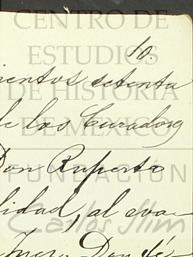 CENTRO DE
ESTUDIOS
DE HISTORIA
DE MÉXICO
10.
ientos setenta
de los Curadores
Don Ruperto
FUNDACIÓN
lidad, al ava-
Carlos Slim